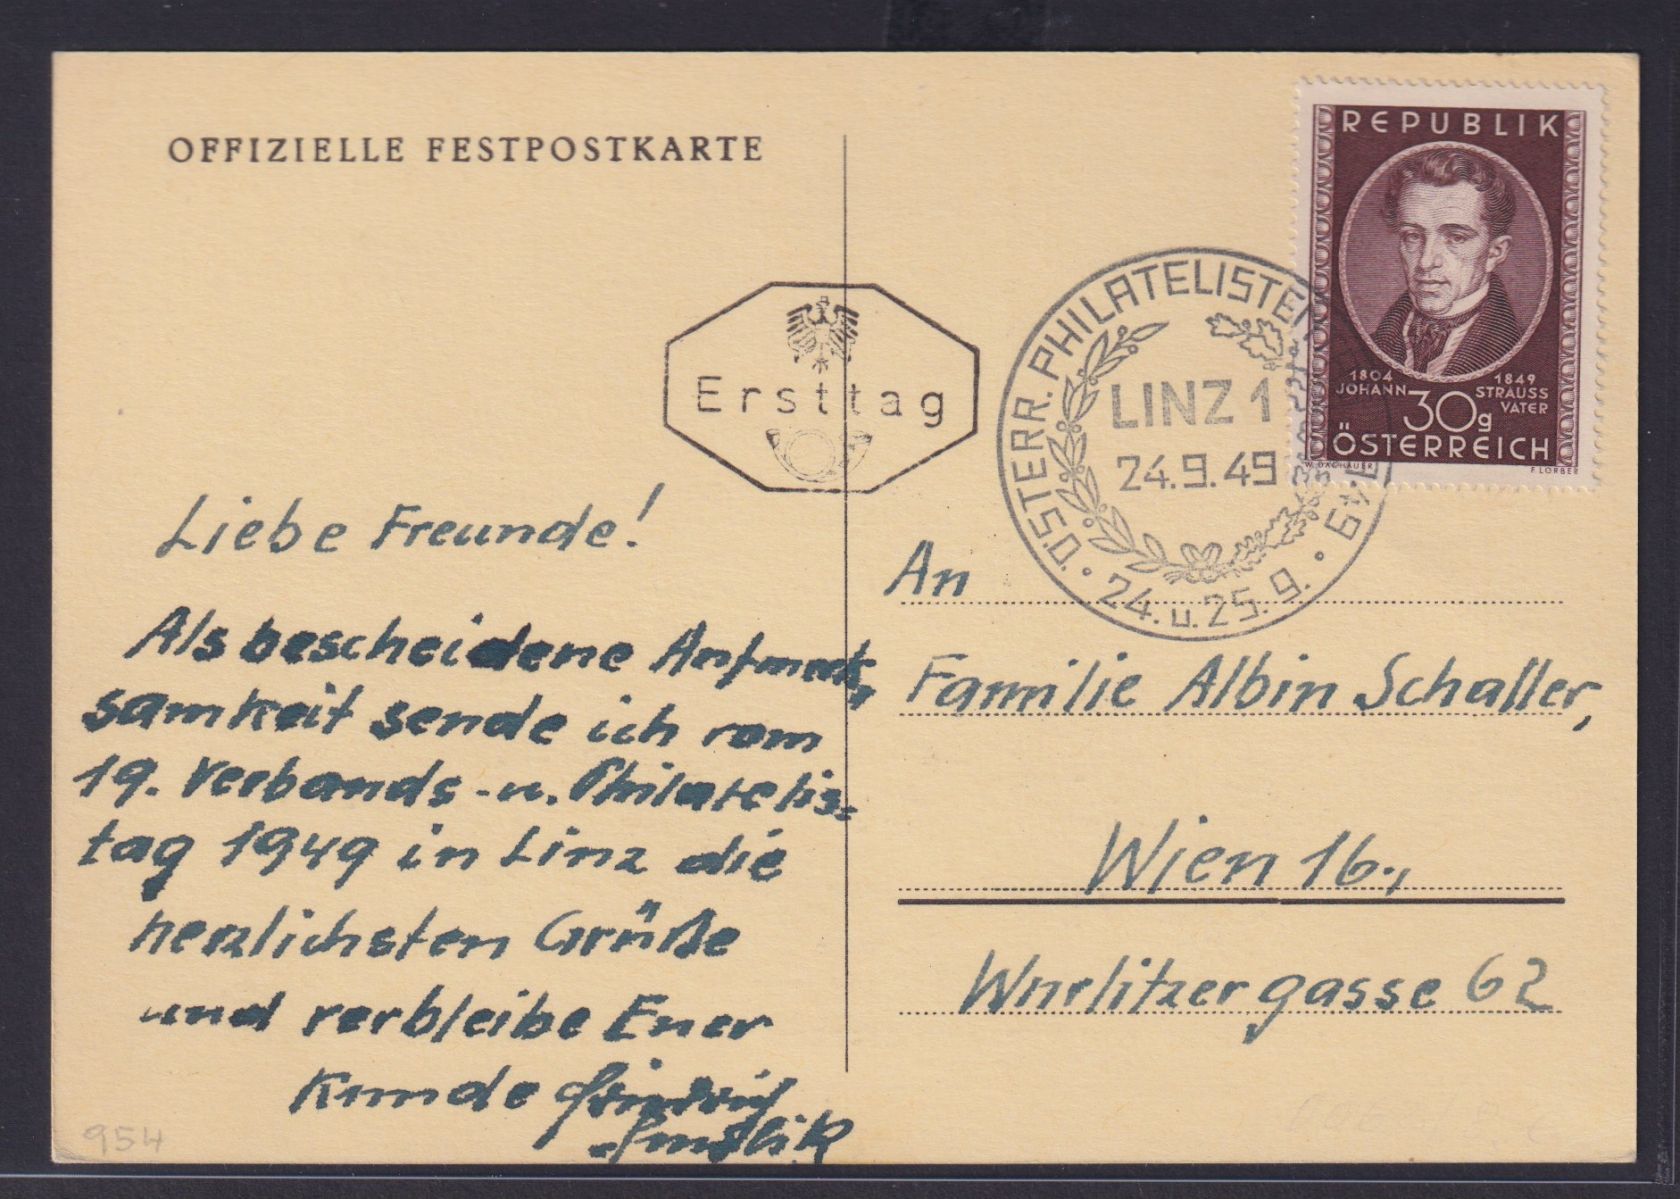 OFFIZIELLE FESTPOSTKARTE
REPUBLIK
1804 1849
JOHANN STRAUSS
VATER
30g
ÖSTERREICH
W. DACHAUER F. LORBER
Ersttag
ÖSTERR. PHILATELISTENTAG
LINZ 1
24.9.49
O.Ö. 24. u. 25. 9. 49
Liebe Freunde!
Als bescheidene Aufmerk-
samkeit sende ich vom
19. Verbands- u. Philatelis-
tag 1949 in Linz die
herzlichsten Grüße
und verbleibe Euer
Kunde Friedrich
An
Familie Albin Schaller,
Wien 16.,
Wurlitzergasse 62
954